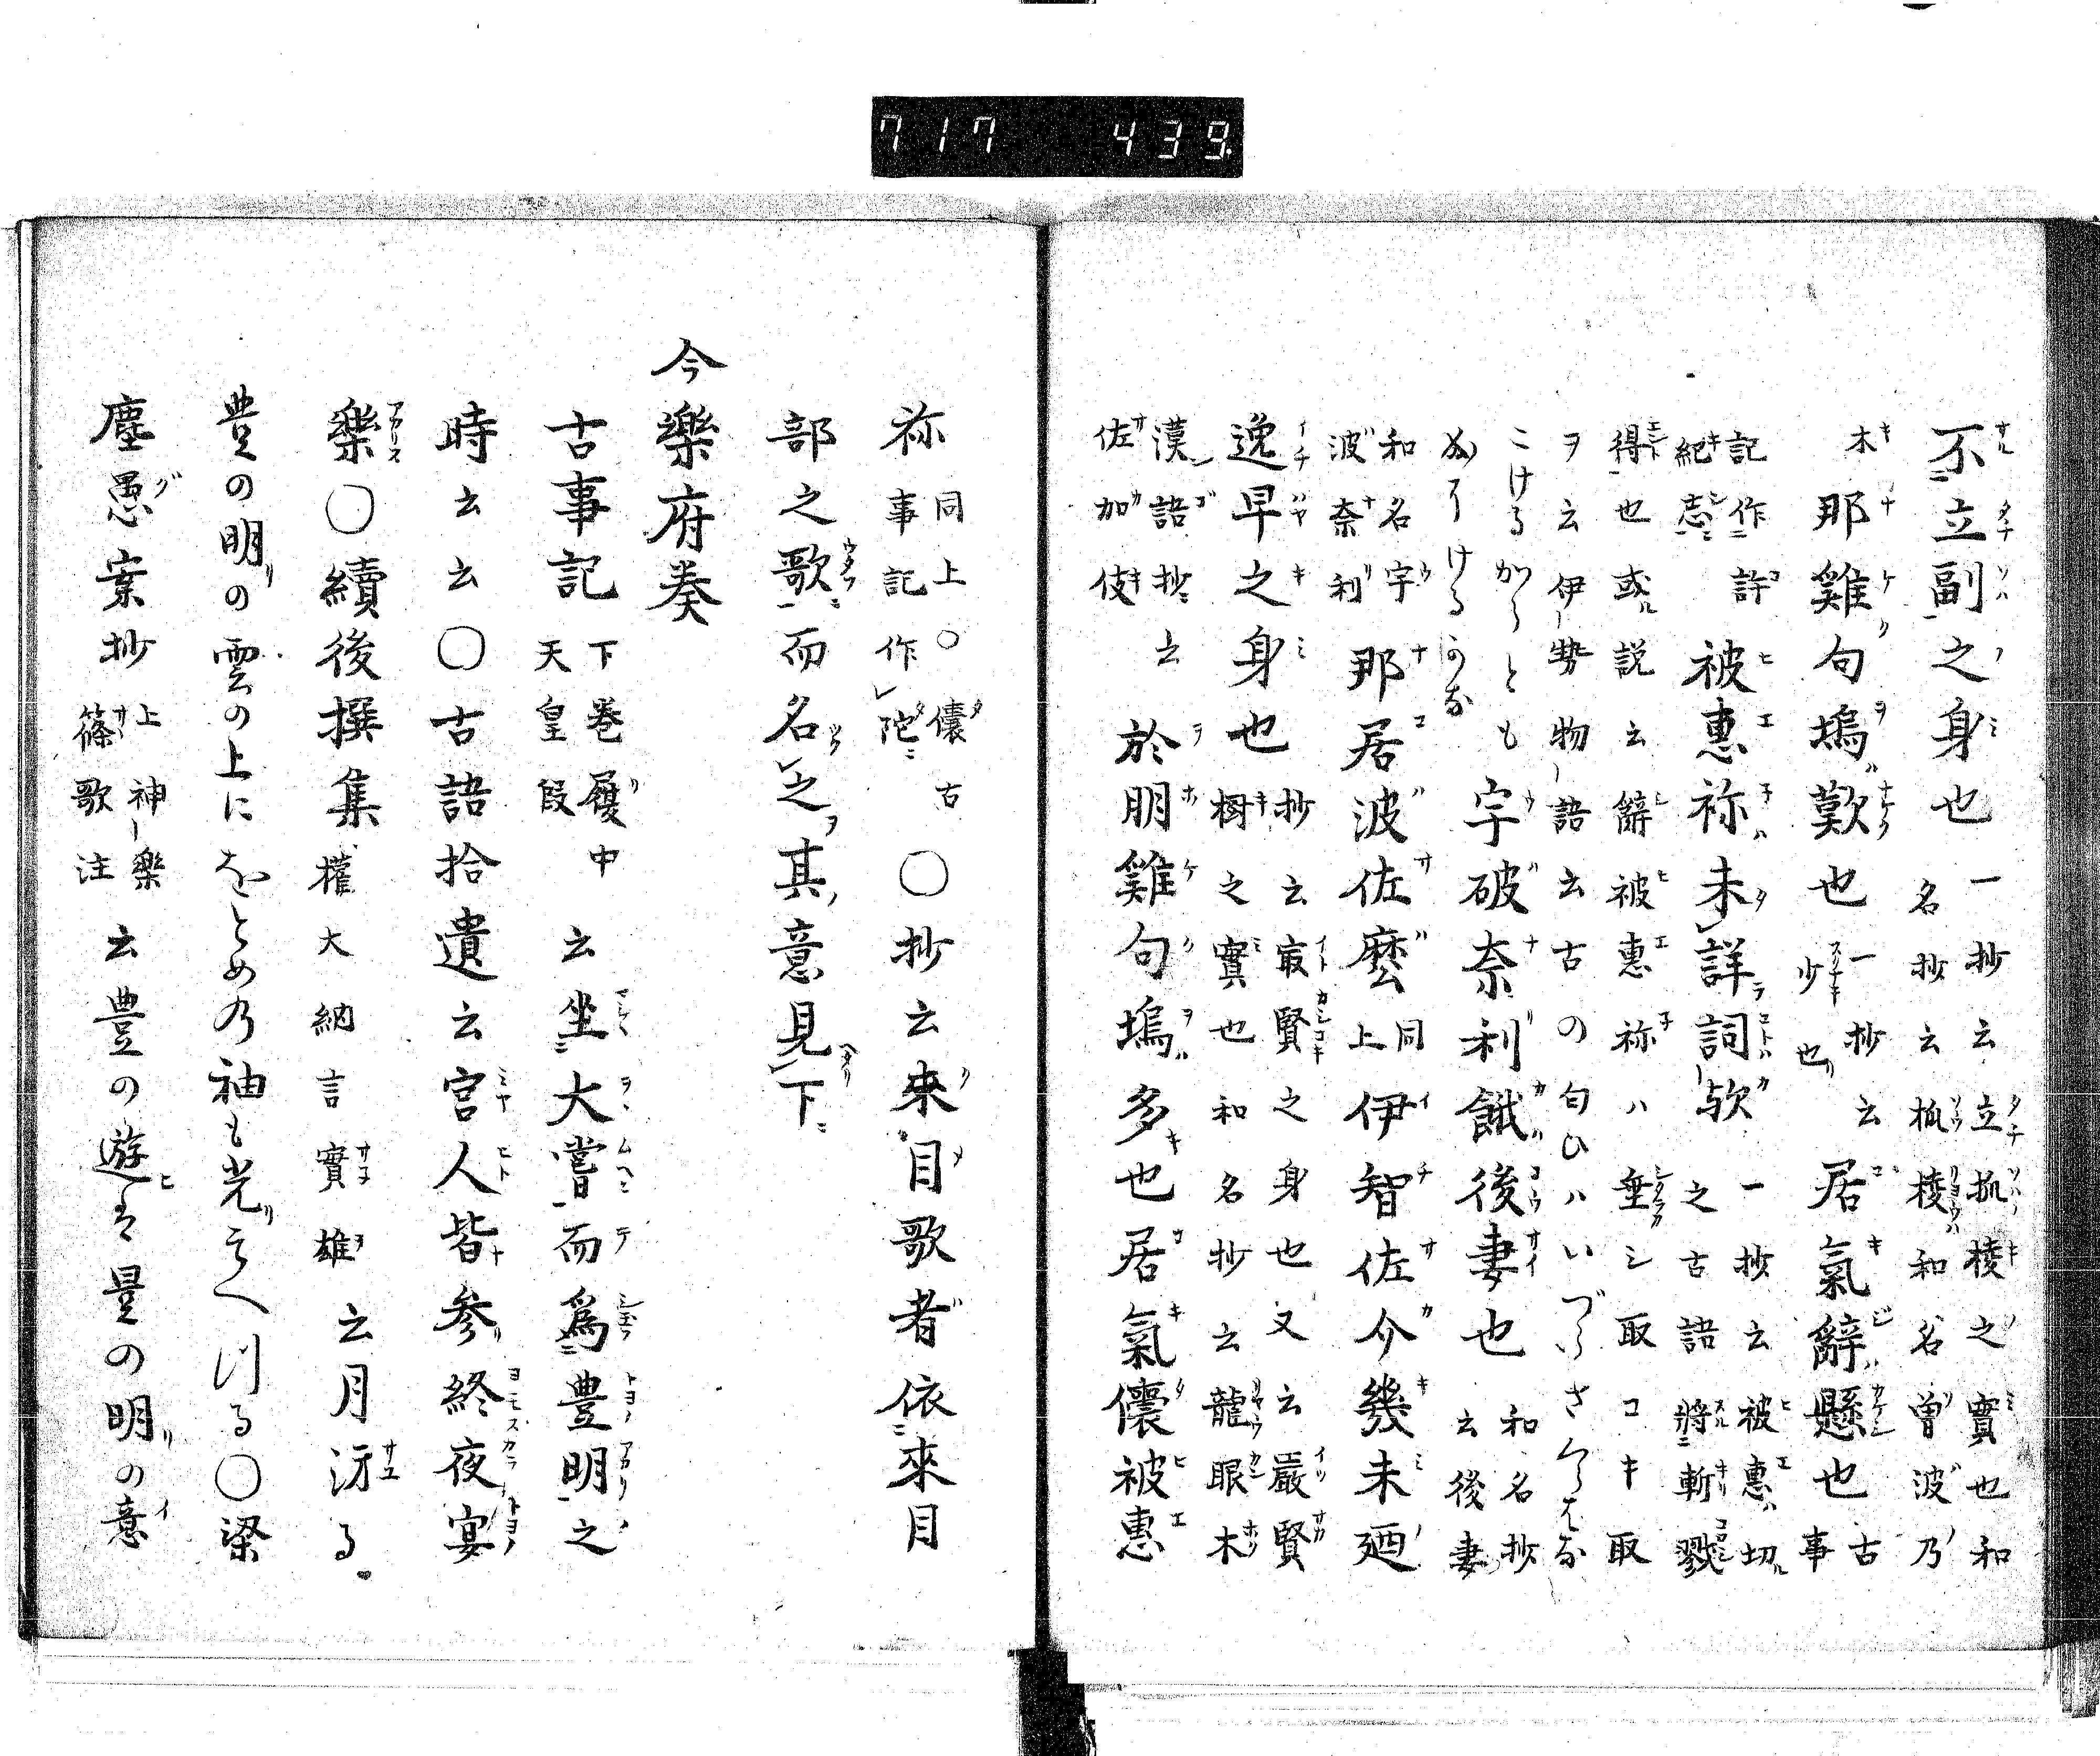 717 439
不立副之身也 一抄云立柧棱之實也和
名抄云柧棱和名曾波乃
木
那雞句塢歎也 一抄云
少也
居氣辭懸也 古
事
記作許
紀志
被惠祢未詳詞欤 一抄云被惠切
之古語將斬戮
得也或説云辭被惠祢ハ垂シ取コキ取
ヲ云伊勢物語云古の匂ひハいづら
こけるからとも
宇破奈利餓後妻也 和名抄
云後妻
和名宇
波奈利
那居波佐麼 同
上
伊智佐介幾未廼
逸早之身也 抄云最賢之身也又云嚴賢
樹之實也和名抄云龍眼木
漢語抄云
佐加伎
於朋雞句塢多也居氣儾被惠
祢 同上○儾古
事記作陀
○抄云來目歌者依來目
部之歌而名之其意見下
今樂府奏
古事記 下卷履中
天皇段
云坐大嘗而爲豊明之
時云云○古語拾遺云宮人皆参終夜宴
樂○續後撰集 權大納言實雄 云月冴る
豊の明の雲の上にをとめの袖も光そへつる○梁
塵愚案抄 上神樂
篠歌注
云豊の遊は豊の明の意